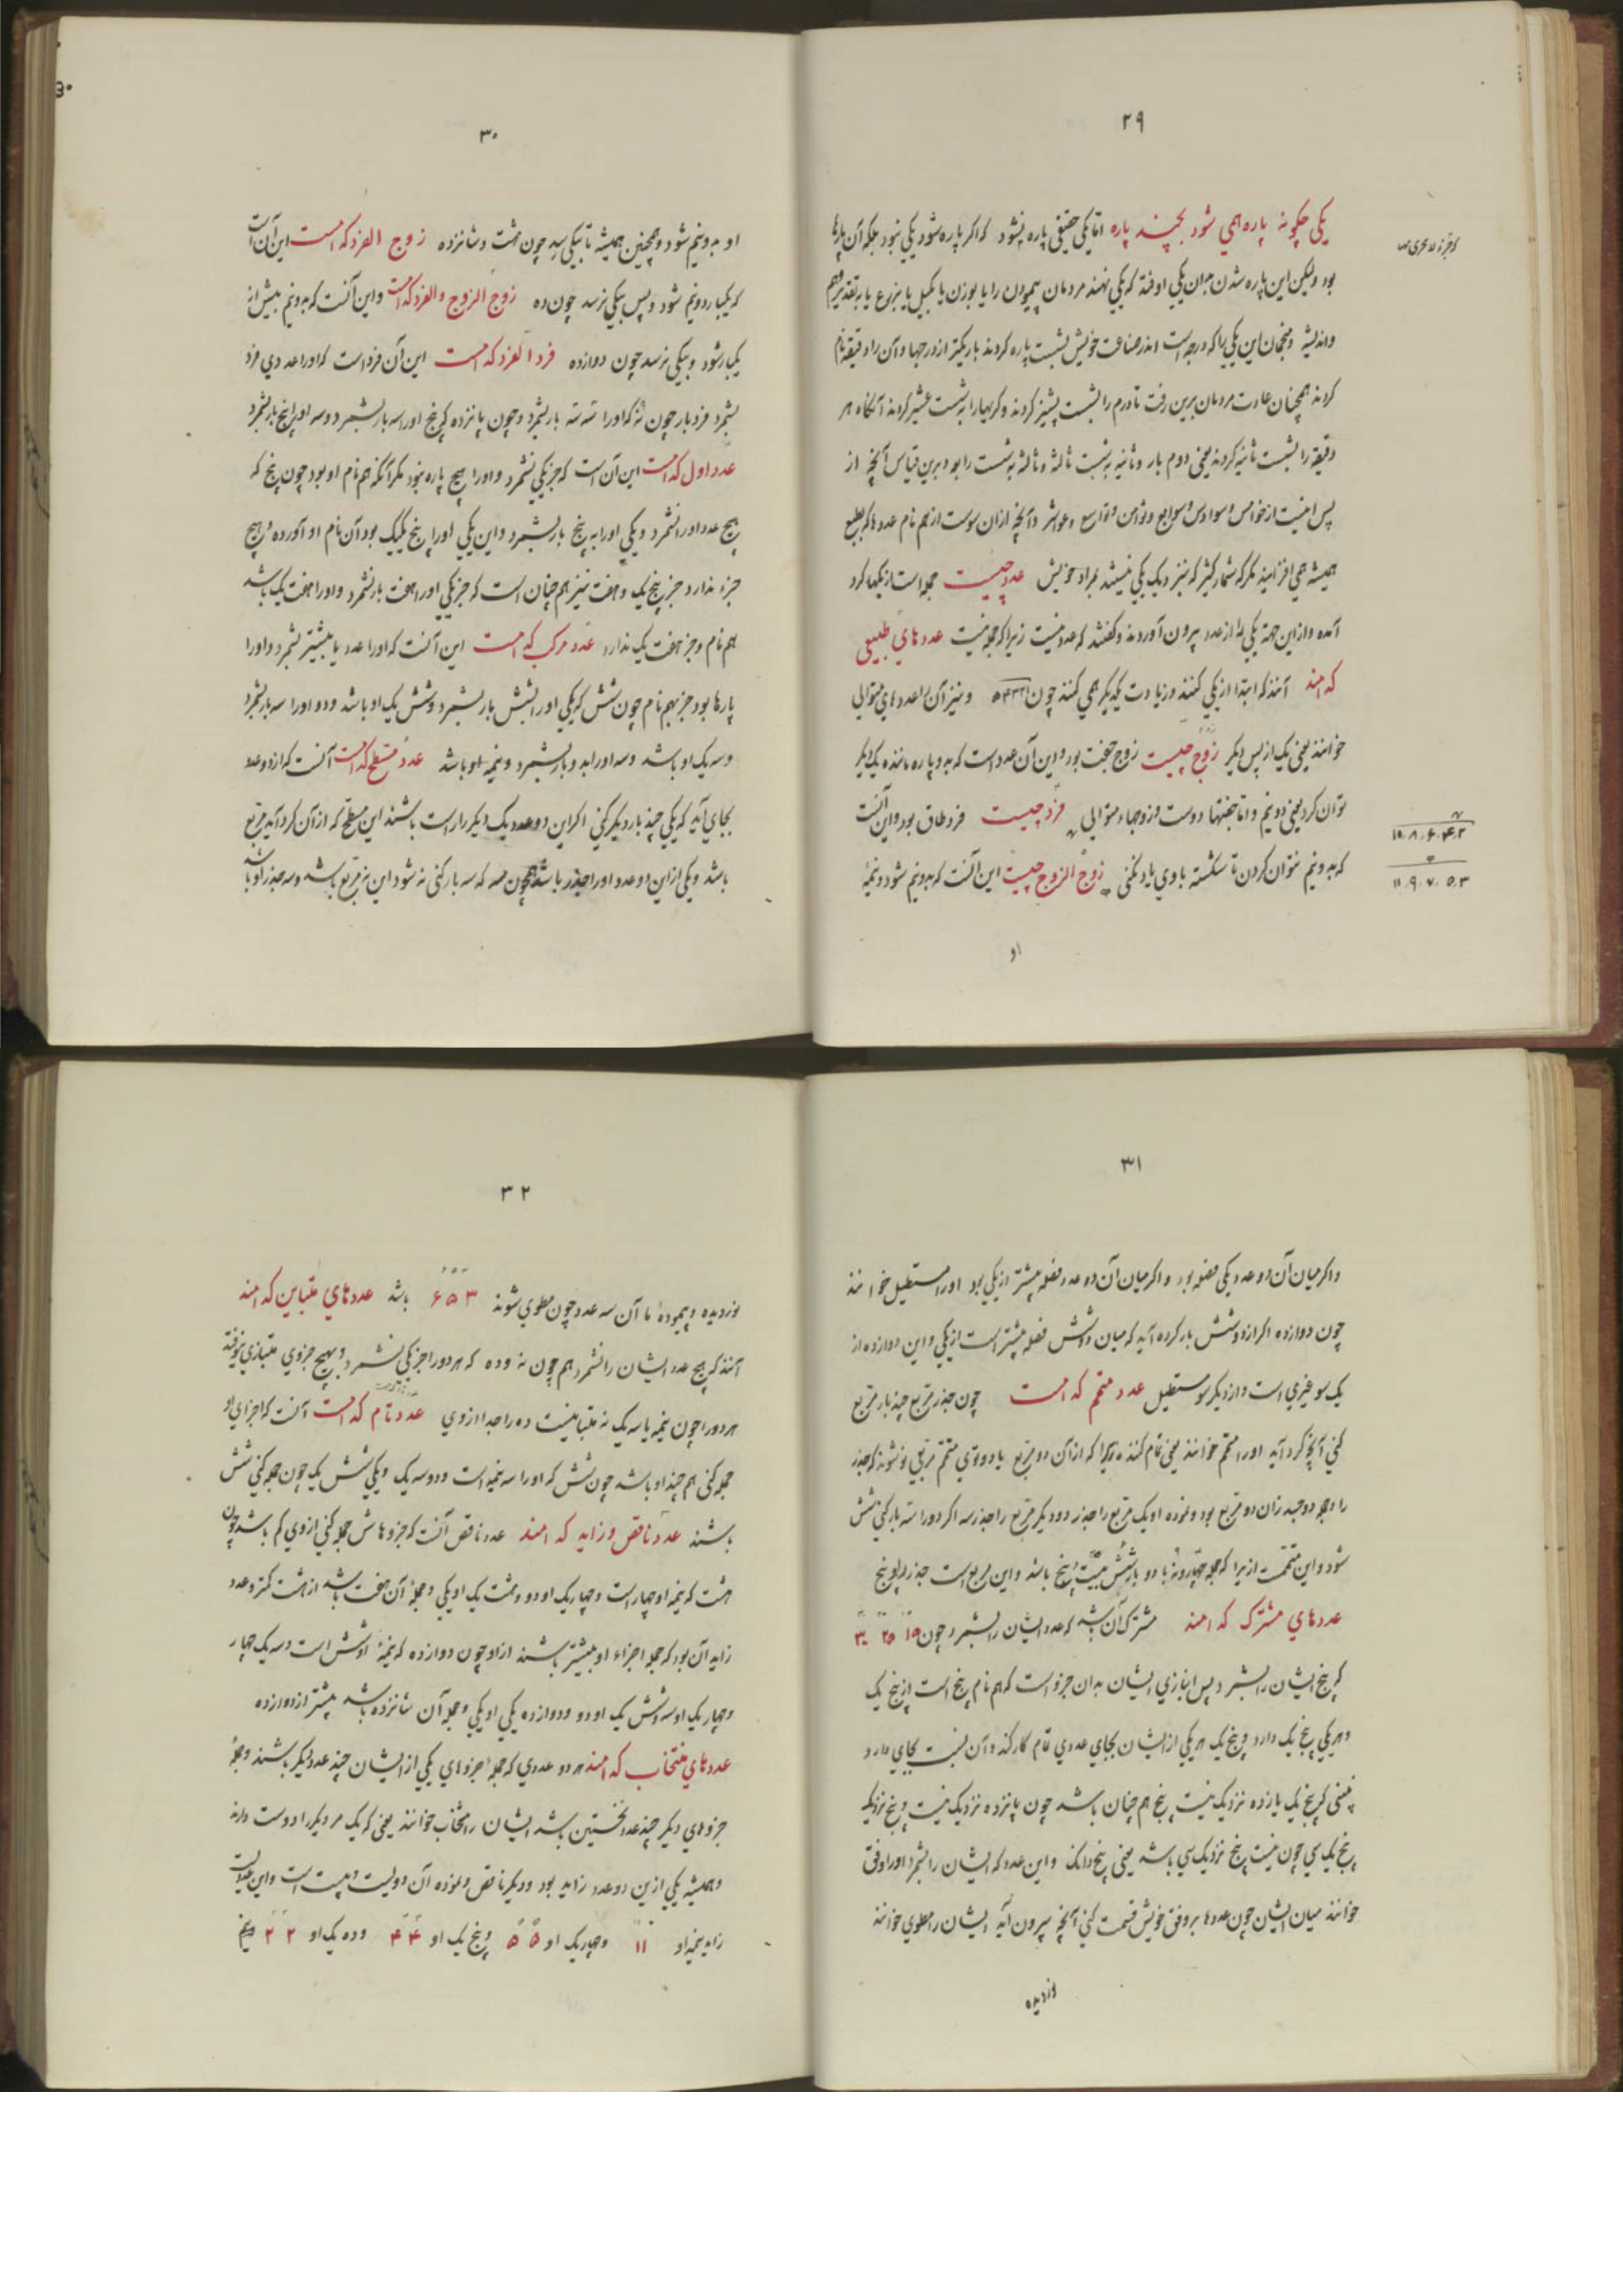 ۲۹
یکی چکونه پاره همی شود بچند پاره امّا یکی حقیقی پاره نشود که اکر پاره شود یکی نبود بلکه آن پارها
بود ولیکن این پاره شدن بران یکی اوفتد که یکی نهند مردمان پیمودن را یا بوزن یا بکیل یا بذرع یا بتقدیر وهم
واندیشه ومنجمان این یکی را که درجه است اندر صناعت خویش بشست پاره کردند باریکتر از درجها وآن را دقیقه نام
کردند همچنان عادت مردمان برین رفت تا درم را بشست پشیز کردند وکریها را به شست عشیر کردند آنکاه هر
دقیقه را بشست ثانیه کردند یعنی دوم بار وثانیه به شست ثالثه وثالثه به شست رابعه وبرین قیاس آنچه از
پس اینست از خوامس وسوادس وسوابع وثوامن وتواسع وعواشر وآنچه ازان سوست از هم نام عددها که بطبع
همیشه همی افزایند مکر که شمارکیر که بنزدیک یکی نیستد بمراد خویش عدد چیست جمله است از یکیها کرد
آمده وازاین جهة یکی را از عدد بیرون آوردند وکفتند که عدد نیست زیرا که جمله نیست عددهای طبیعی
که امند آنند که ابتدا از یکی کنند وزیادت یکدیکر همی کنند چون ۵۴۳۲۱ ونیز آن را عددهای متوالی
خوانند یعنی یک از پس دیکر زوج چیست زوج جفت بود واین آن عدد است که بدو پاره مانندهٔ یکدیکر
توان کرد یعنی دو نیم واما جفتها دوست وزوجهاء متوالی فرد چیست فرد طاق بود واین آنست
که بدو نیم نتوان کردن تا شکسته با وی یاد نکنی زوج الزوج چیست این آنست که بدو نیم شود ونیمهٔ
۱۰ ۸ ۶ ۴ ۲
۱۱ ۹ ۷ ۵ ۳
او
۳۰
او بدو نیم شود وهمچنین همیشه تا بیکی رسد چون هشت وشانزده زوج الفرد کدامست این آن است
که یکبار دو نیم شود وپس بیکی نرسد چون ده زوج الزوج والفرد کدامست واین آنست که بدو نیم بیش از
یکبار شود وبیکی نرسد چون دوازده فرد الفرد کدامست این آن فرد است که او را عددی فرد
بشمرد فرد بار چون نه که او را سه سه بار بشمرد وچون پانزده که پنج او را سه بار بشمرد وسه او را پنج بار بشمرد
عدد اول کدامست این آن است که جز یکی نشمرد واو را هیچ پاره نبود مکر آنکه هم نام او بود چون پنج که
هیچ عدد او را نشمرد ویکی او را به پنج بار بشمرد واین یکی او را پنج یک بود آن نام او آورده وهیچ
جزء ندارد جز پنج یک وهفت نیز هم چنان است که جز یکی او را هفت بار نشمرد واو را هفت یک باشد
هم نام وجز هفت یک ندارد عدد مرکب کدامست این آنست که او را عدد یا بیشتر بشمرد واو را
پارها بود جز بهم نام چون شش که یکی او را بشش بار بشمرد وشش یک او باشد ودو او را سه بار بشمرد
وسه یک او باشد وسه او را بدو بار بشمرد ونیمهٔ او باشد عدد مسطح کدامست آنست که از دو عدد
بجای آید که یکی چند بار دیکر کنی اکر این دو عدد یک دیکر را راست باشند این مسطّح که از آن کرد آید مربع
باشد ویکی از این دو عدد او را جذر باشد همچون سه که سه بار کنی نه شود این نه مربع باشد وسه جذر او باشد
۳۱
واکر میان آن دو عدد یکی فضله بود واکر میان آن دو عدد فضله بیشتر از یکی بود او را مستطیل خوانند
چون دوازده اکر از دو وشش بار کرده آید که میان دو وشش فضله بیشتر است از یکی واین دوازده از
یک سو غیری است واز دیکر سو مستطیل عدد متمم کدامست چون جذر مربع چند بار مربع
کنی آنچه کرد آید او را متمم خوانند یعنی تمام کننده زیرا که از آن دو مربع با دو توی متمم مربعی نو شوند که جذر
را جمله دو جذر آن دو مربع بود ونموده او یک مربع را جذر دو ودیکر مربع را جذر سه اکر دو را سه بار کنی شش
شود واین متمّمست از یرا که جمله چهار ونه با دو بار شش بیست وپنج باشد واین مربع است جذر او پنج
عددهای مشترک که امند مشترک آن باشد که عدد ایشان را بشمرد چون ۱۵ ۲۵ ۳۰
که پنج ایشان را بشمرد پس انبازی ایشان بدان جزو است که هم نام پنج است از پنج یک
وهر یکی پنج یک دارد وپنج یک هر یکی از ایشان بجای عددی تمام کار کند وآن نسبت بجای دارد
نبینی که پنج یک پانزده نزدیک بیست پنج هم چنان باشد چون پانزده نزدیک بیست وپنج نزدیک
پنج یک سی چون بیست پنج نزدیک سی باشد یعنی پنج دانک واین عدد که ایشان را بشمرد او را وفق
خوانند میان ایشان چون عددها بر وفق خویش قسمت کنی آنچه بیرون آید ایشان را مطوی خوانند
نوردیده
۳۲
نوردیده وپیموده تا آن سه عدد چون مطوی شوند ۳ ۵ ۶ باشد عددهای متباین که امند
آنند که هیچ عدد ایشان را نشمرد هم چون نه وده که هر دو را جز یکی نشمرد وبهیچ جزوی متبازی نیوفتد
هر دو را چون نیمه یا سه یک نه متباینست ده را جدا از وی عدد تام کدامست آنست که اجزای او
جمله کنی هم چند او باشد چون شش که او را سه نیمه است ودو سه یک ویکی شش یک چون جمله کنی شش
باشند عدد ناقص وزاید که امند عدد ناقص آنست که جزوهاش جمله کنی از وی کم باشد چون
هشت که نیمه او چهار است وچهار یک او دو وهشت یک او یکی وجملهٔ آن هفت باشد از هشت کمتر وعدد
زاید آن بود که جمله اجزاء او بیشتر باشند از او چون دوازده که نیمهٔ او شش است وسه یک چهار
وچهار یک او سه وشش یک او دو ودوازده یکی او یکی وجملهٔ آن شانزده باشد بیشتر از دوازده
عددهای متحاب که امند هر دو عددی که جمله جزوهای یکی از ایشان چند عدد دیکر باشند وجملهٔ
جزوهای دیکر چند عدد نخستین باشد ایشان را متحاب خوانند یعنی که یک مر دیکر را دوست دارند
وهمیشه یکی ازین دو عدد زاید بود ودیکر ناقص ونموده آن دویست وبیست است واین عددیست
زاید نیمهٔ او ۱۱۰ وچهار یک او ۵۵ وپنج یک او ۴۴ وده یک او ۲۲